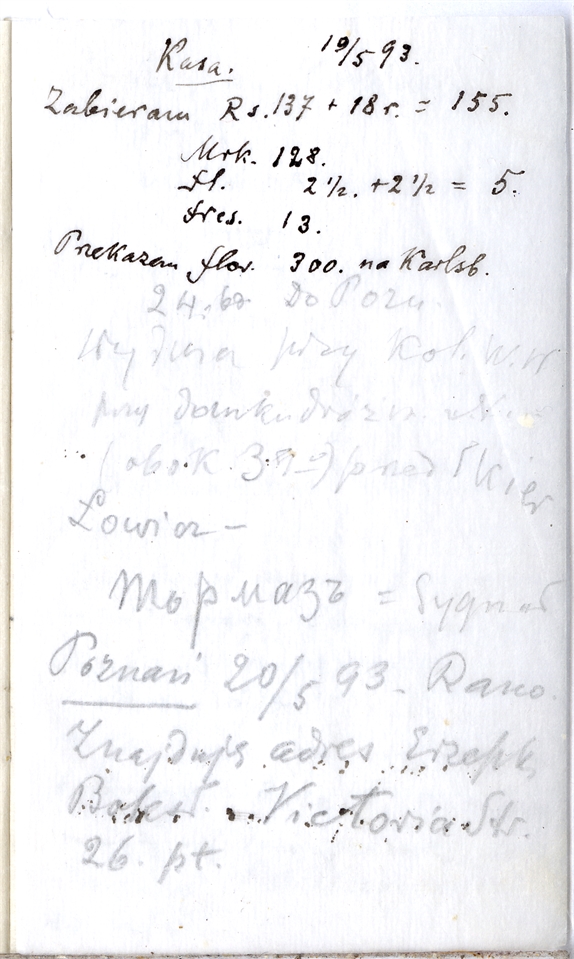 Kasa. 19/5 93.
Zabieram Rs. 137 + 18 r. = 155.
Mrk. 128.
fl. 2 1/2. + 2 1/2 = 5.
fres. 13.
Przekazem flor. 300. na Karlsb.
24. Do Pozn.
przy Kol. W. W
przy
(obok 3 ) przed
Łowicz –
Тормазъ = Sygnał
Poznań 20/5 93 – Rano.
Znajduję adres Erzepk,
Victoria Str.
26. pt.